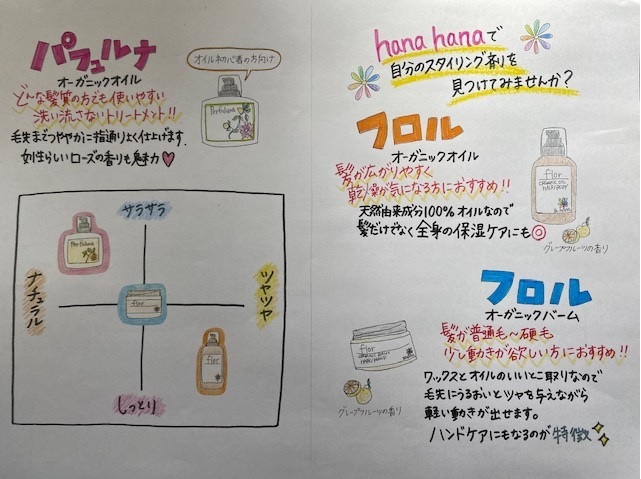 パフュルナ
オーガニックオイル
オイル初心者の方向け
どんな髪質の方でも使いやすい
洗い流さないトリートメント!!
毛先までつややかに指通りよく仕上げます。
女性らしいローズの香りも魅力♥
サラサラ
ナチュラル
ツヤツヤ
しっとり
flor
flor
hana hanaで
自分のスタイリング剤を
見つけてみませんか？
フロル
オーガニックオイル
髪が広がりやすく
乾燥が気になる方におすすめ!!
天然由来成分100%オイルなので
髪だけでなく全身の保湿ケアにも◎
flor
ORGANIC OIL
HAIR/BODY
グレープフルーツの香り
フロル
オーガニックバーム
髪が普通毛〜硬毛
少し動きが欲しい方におすすめ!!
ワックスとオイルのいいとこ取りなので
毛先にうるおいとツヤを与えながら
軽い動きが出せます。
ハンドケアにもなるのが特徴
flor
グレープフルーツの香り